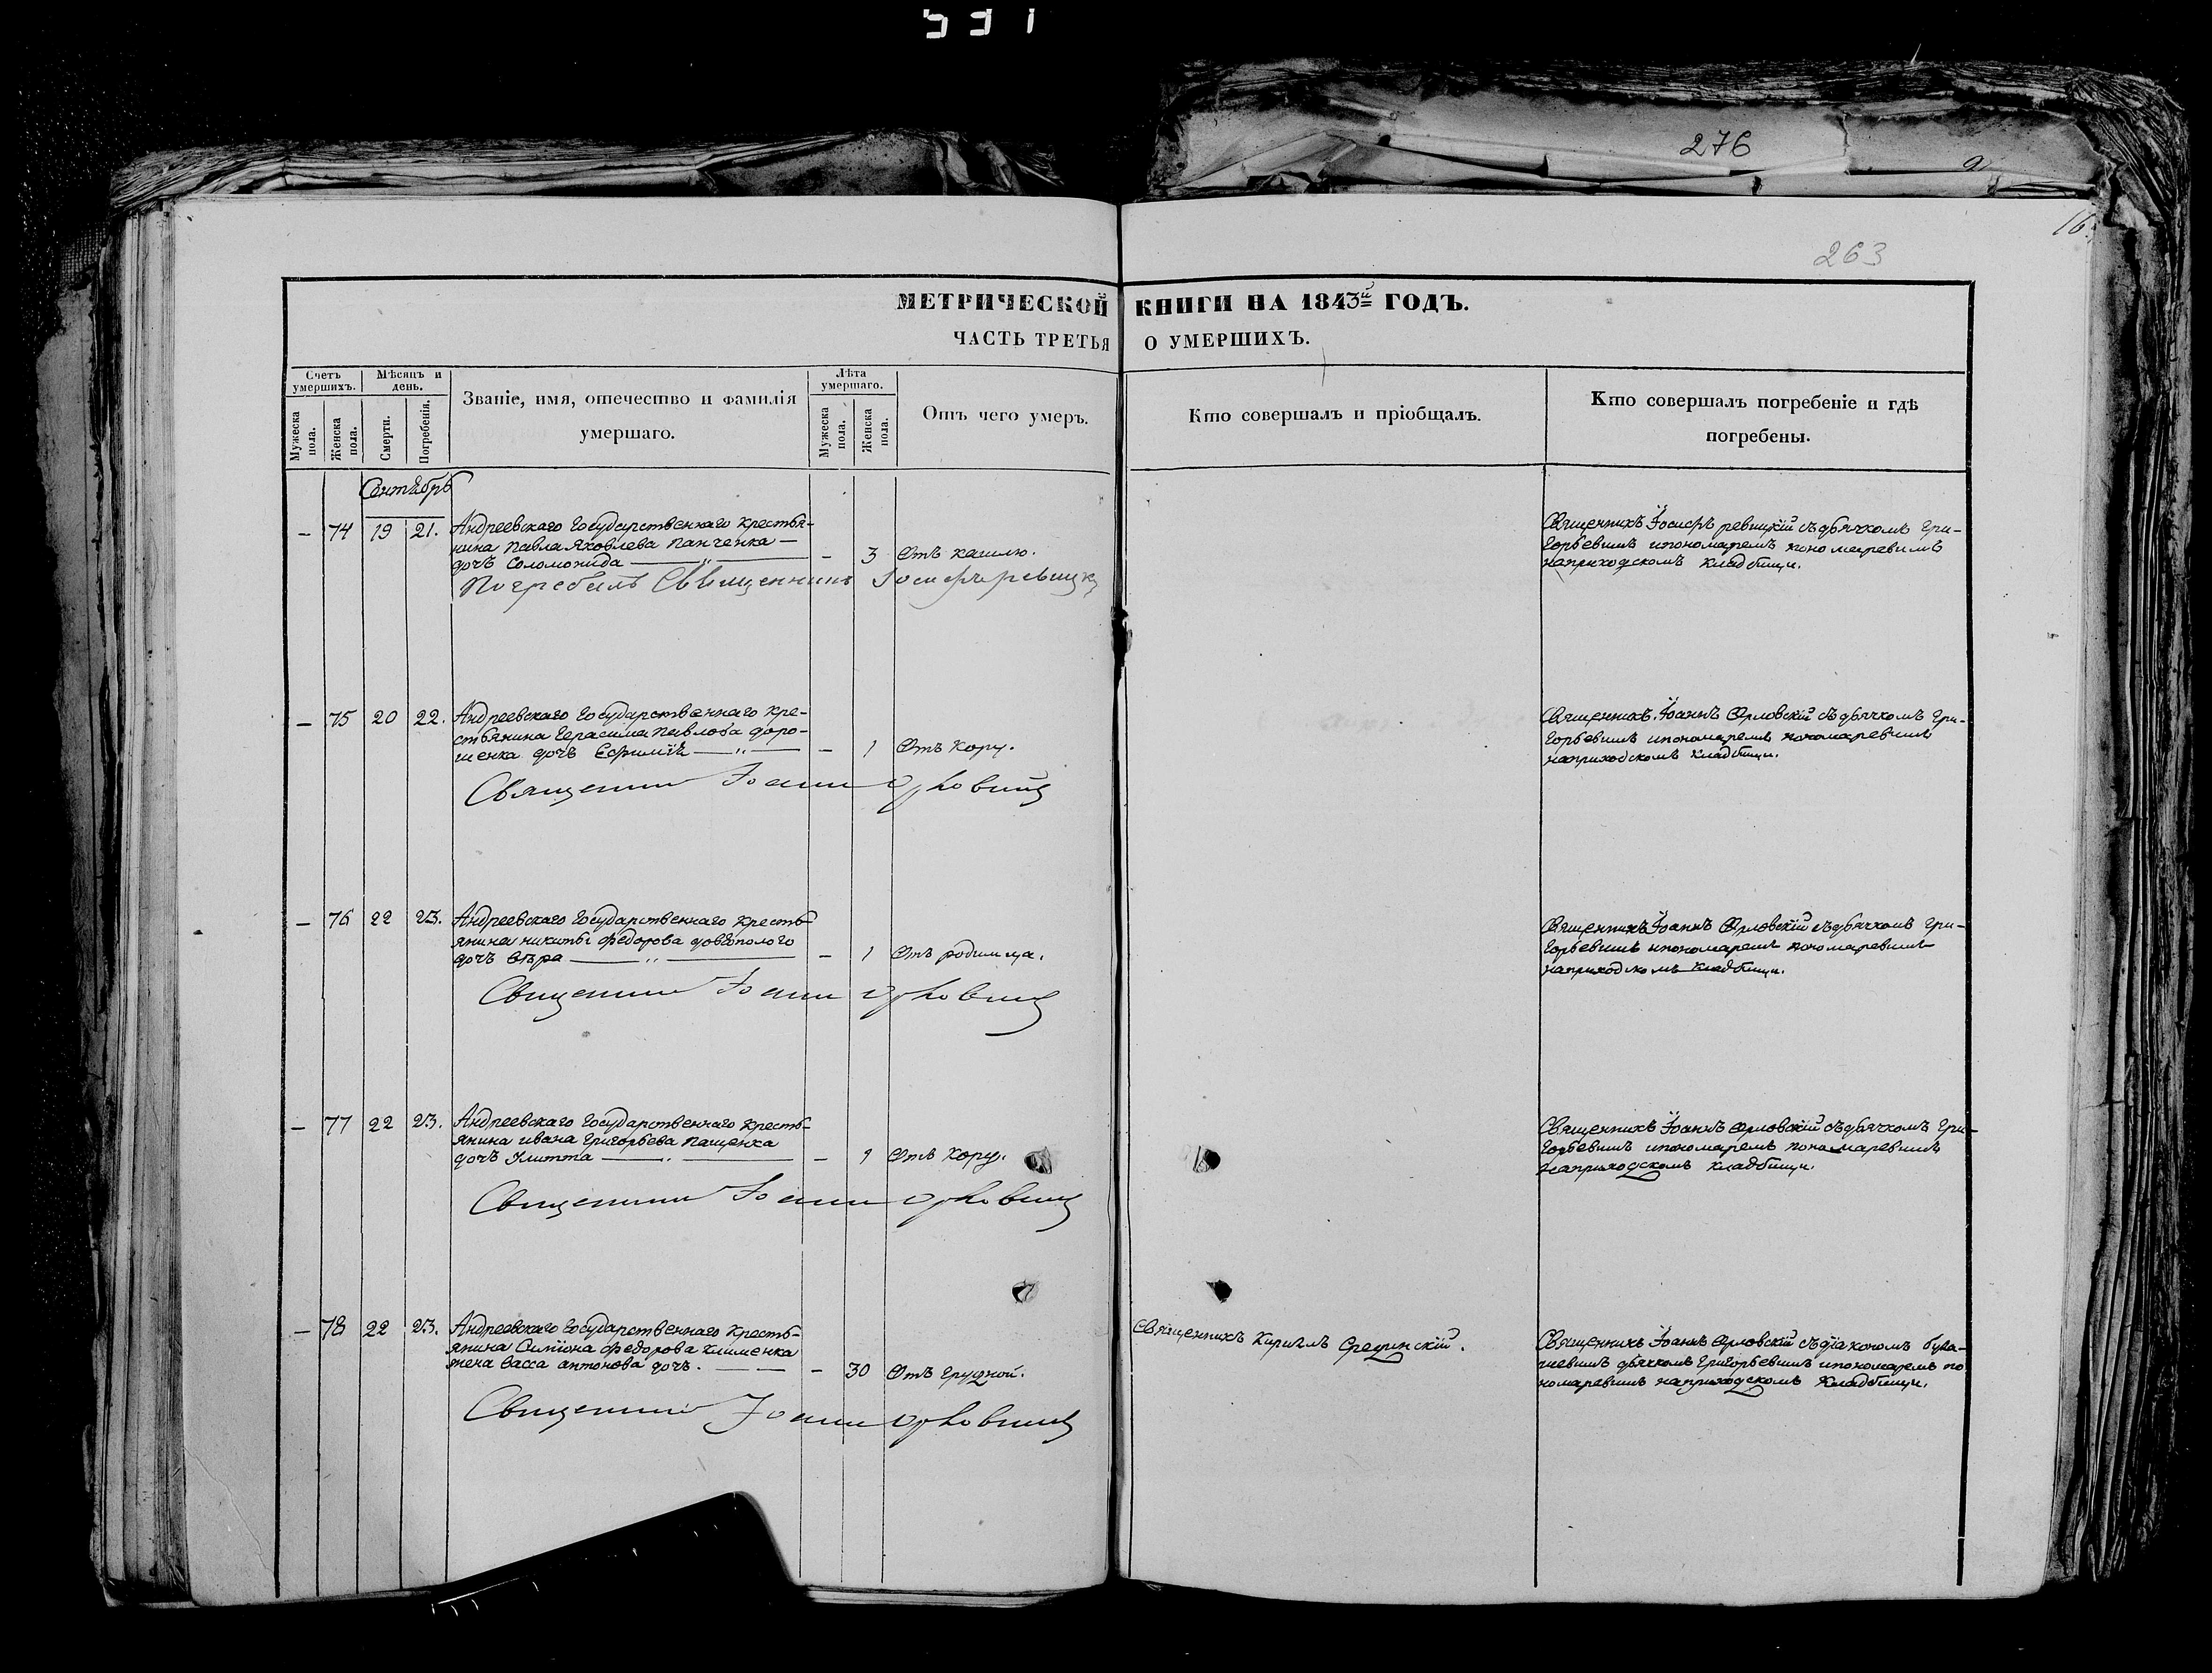 276
263
МЕТРИЧЕСКОЙ КНИГИ НА 1843й ГОДЪ.
ЧАСТЬ ТРЕТЬЯ О УМЕРШИХЪ.
Счетъ умершихъ.
Мужеска пола.
Женска пола.
Мѣсяцъ и день.
Смерти.
Погребенія.
Званіе, имя, отечество и фамилія
умершаго.
Лѣта умершаго.
Мужеска пола.
Женска пола.
Отъ чего умеръ.
Кто совершалъ и пріобщалъ.
Кто совершалъ погребеніе и гдѣ
погребены.
Сентябрь
— 74 19 21. Андреевскаго Государственнаго крестья-
нина Павла Яковлева Панченка —
дочь Соломонида — „ — — 3 Отъ кашлю.
Священникъ Іосифъ Ревицкій съ дьячкомъ Гри-
горьевимъ и пономаремъ Пономаревимъ
на приходскомъ кладбищи.
Погребалъ Священникъ Іосифъ Ревицкій
— 75 20 22. Андреевскаго Государственнаго кре-
стьянина Герасима Павлова Доро-
шенка дочь Ефимія — „ — — 1 Отъ кору.
Священникъ Іоаннъ Орловскій съ дьячкомъ Гри-
горьевимъ и пономаремъ Пономаревимъ
на приходскомъ кладбищи.
Священникъ Іоаннъ Орловскій
— 76 22 23. Андреевскаго Государственнаго кресть-
янина Никиты Федорова Довгополого
дочь Вѣра — „ — — 1 Отъ родимца.
Священникъ Іоаннъ Орловскій съ дьячкомъ Гри-
горьевимъ и пономаремъ Пономаревимъ
на приходскомъ кладбищи.
Священникъ Іоаннъ Орловскій
— 77 22 23. Андреевскаго Государственнаго кресть-
янина Ивана Григорьева Пащенка
дочь Улитта — . — — 1 Отъ кору.
Священникъ Іоаннъ Орловскій съ дьячкомъ Гри-
горьевимъ и пономаремъ Пономаревимъ
на приходскомъ кладбищи.
Священникъ Іоаннъ Орловскій
— 78 22 23. Андреевскаго Государственнаго кресть-
янина Симіона Федорова Клименка
жена Васса Антонова дочь. — — — 30 Отъ грудной.
Священникъ Кирилъ Срединскій.
Священникъ Іоаннъ Орловскій съ діакономъ
дьячкомъ Григорьевимъ и пономаремъ По
номаревимъ на приходскомъ кладбищи.
Священникъ Іоаннъ Орловскій